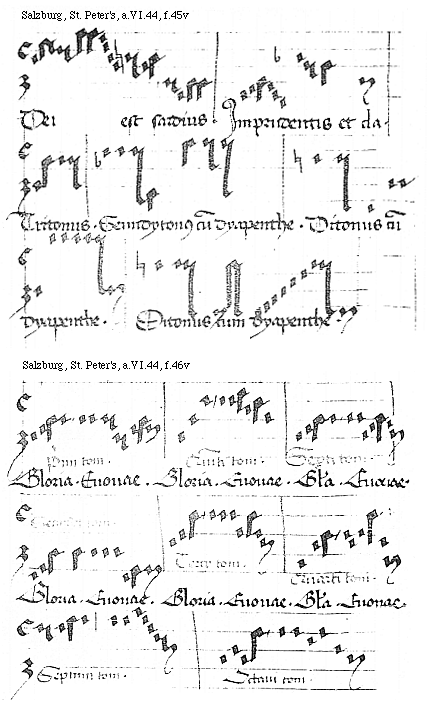 Salzburg, St. Peter's, a.VI.44, f.45v
Dei est sardius. Imprudentis et da.
Tritonus. Semidytonus cū dyapenthe. Ditonus cū
dyapenthe. Ditonus cum dyapenthe.
Salzburg, St. Peter's, a.VI.44, f.46v
Gloria. Euouae. Gloria. Euouae. Gła. Euouae.
Terty toni.
Quarti toni.
Gloria. Euouae. Gloria. Euouae. Gła. Euouae.
Septimi toni. Octaui toni.